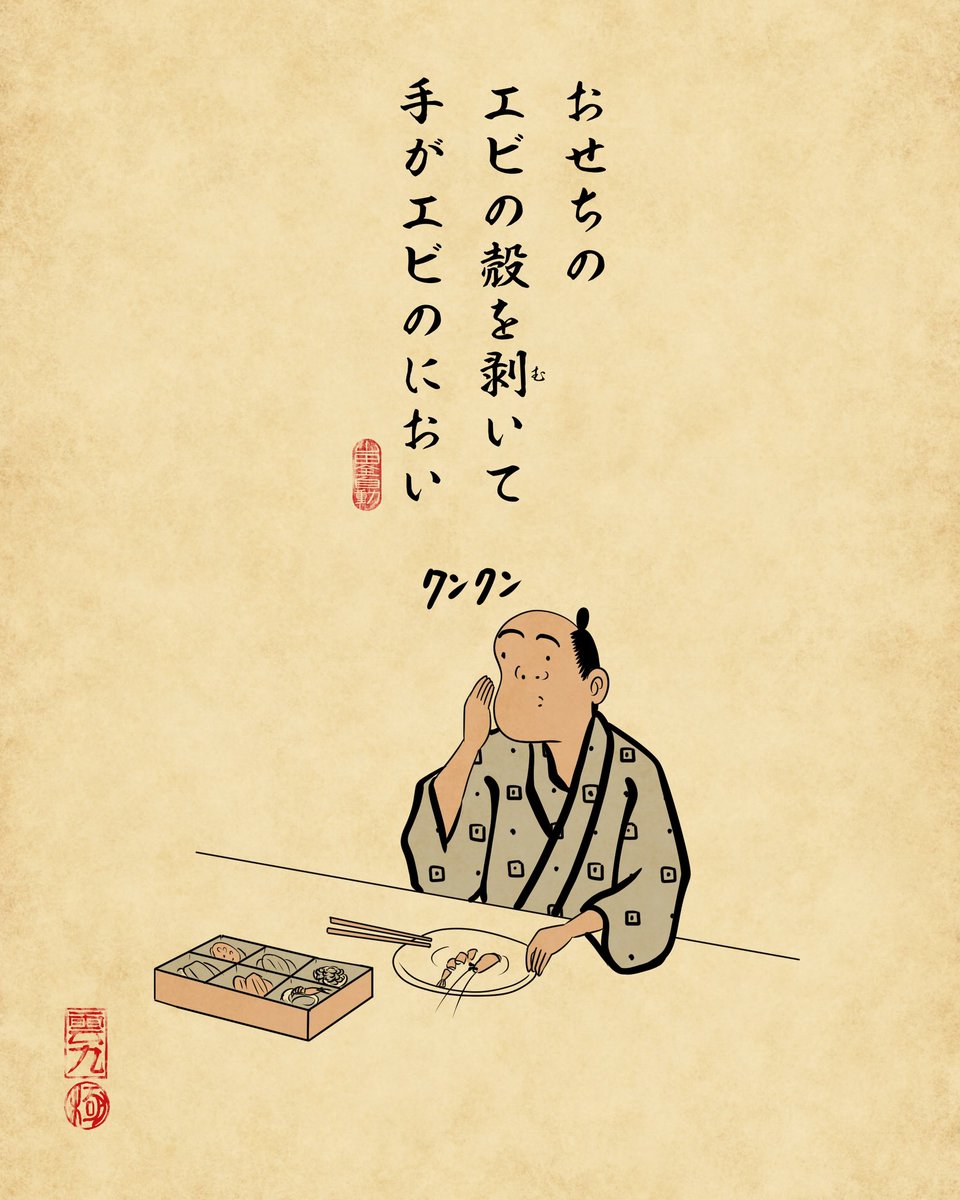 おせちの
エビの殻を剥いて
む
手がエビのにおい
クンクン